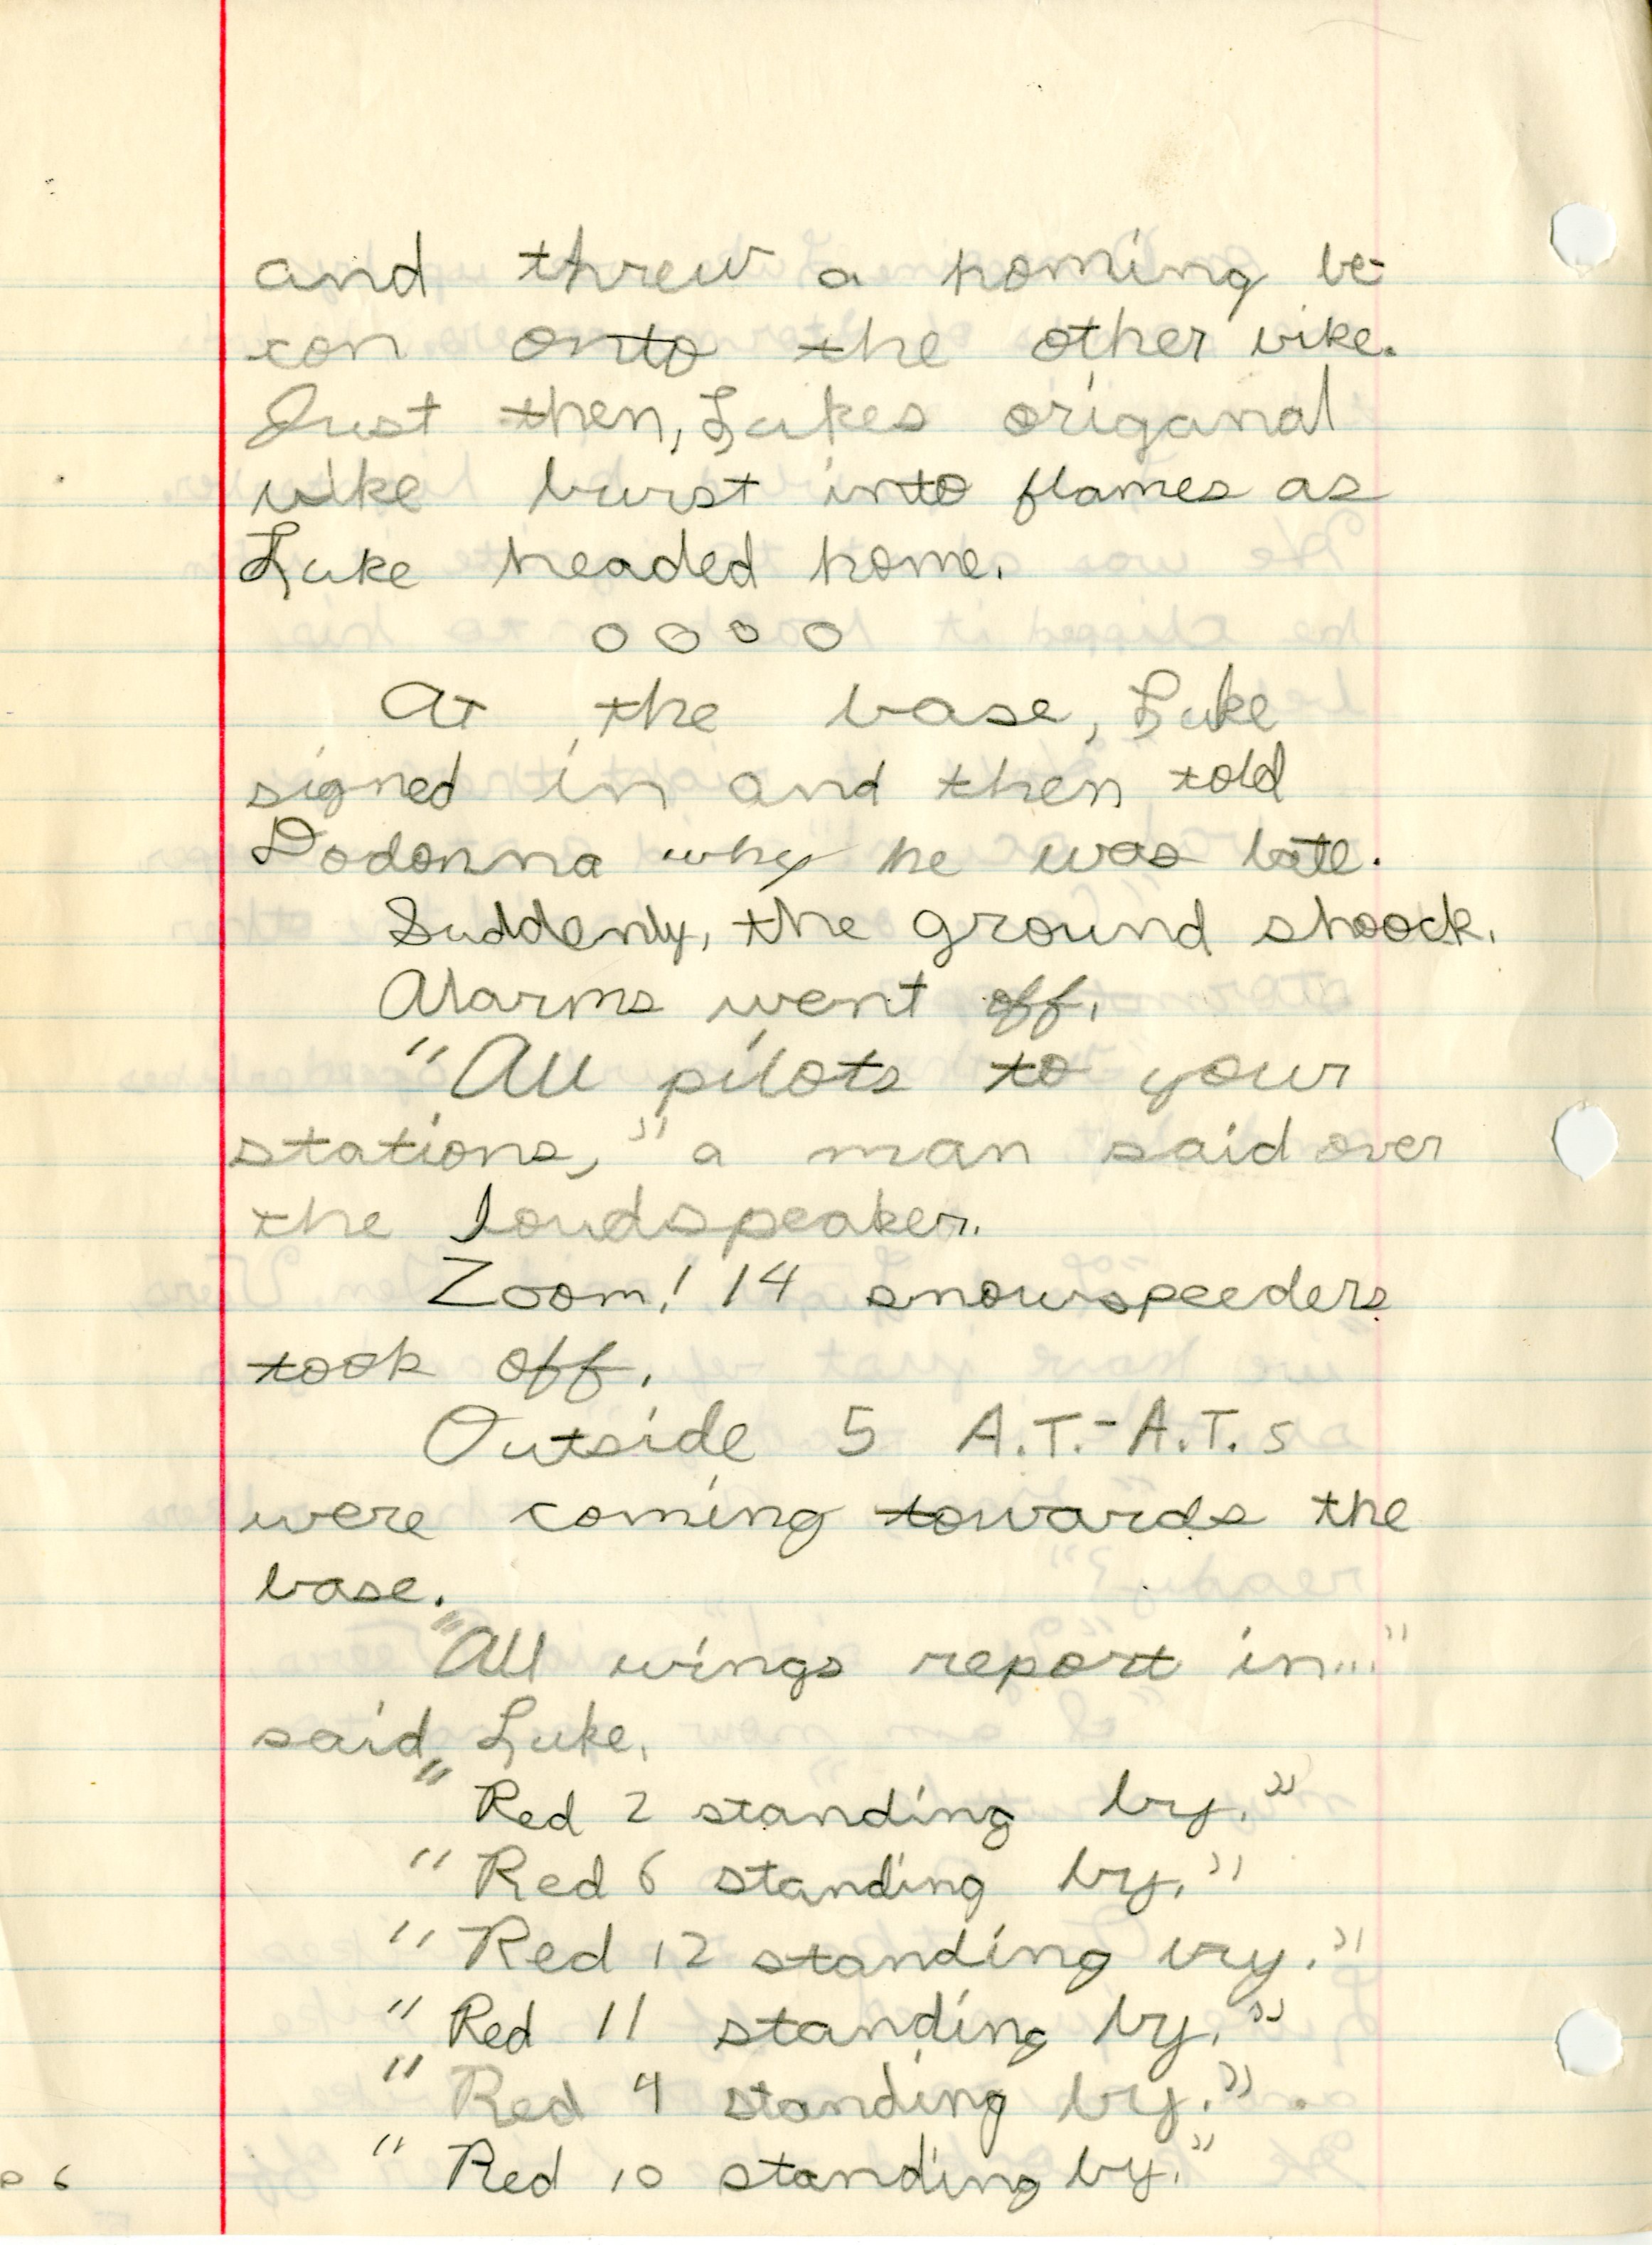 and threw a homing be-
con onto the other bike.
Just then, Lukes origanal
bike burst into flames as
Luke headed home.
o o o o
At the base, Luke
signed in and then told
Dodonna why he was late.
Suddenly, the ground shoock.
Alarms went off.
"All pilots to your
stations," a man said over
the loudspeaker.
Zoom! 14 snowspeeders
took off.
Outside 5 A.T.-A.T.s
were coming towards the
base.
"All wings report in..."
said Luke.
"Red 2 standing by."
"Red 6 standing by."
"Red 12 standing by."
"Red 11 standing by."
"Red 4 standing by."
"Red 10 standing by."
p 6